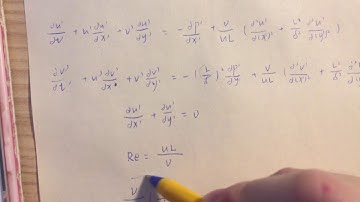 ∂u'/∂t' + u' ∂u'/∂x' + v' ∂u'/∂y' = − ∂p'/∂x' + ν/uL ( ∂²u'/∂(x')² + L²/δ² ∂²u'/∂(y')² )
∂v'/∂t' + u' ∂v'/∂x' + v' ∂v'/∂y' = − (L/δ)² ∂p'/∂y' + ν/uL ( ∂²v'/∂(x')² + L²/δ²
∂u'/∂x' + ∂u'/∂y' = 0
Re = uL/ν